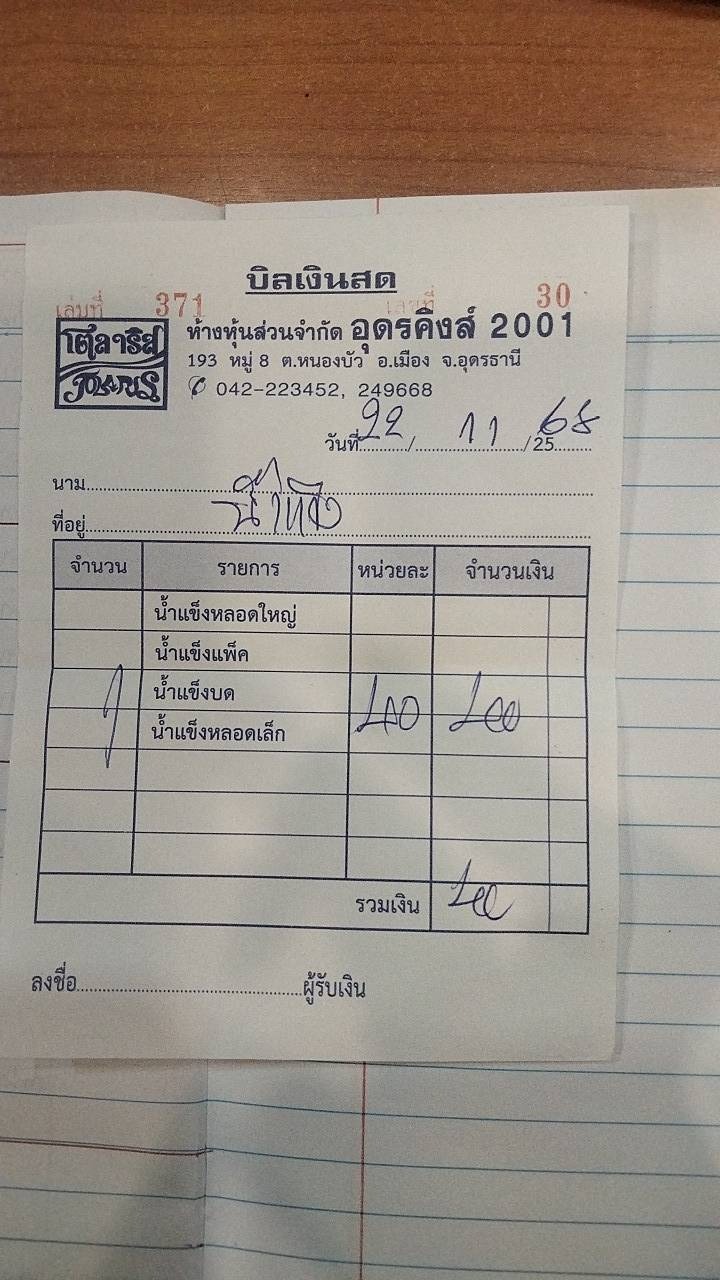 บิลเงินสด
เล่มที่ 371 เลขที่ 30
โตลาริส
TOLARIS
ห้างหุ้นส่วนจำกัด อุดรคิงส์ 2001
193 หมู่ 8 ต.หนองบัว อ.เมือง จ.อุดรธานี
✆ 042-223452, 249668
วันที่ 22 / 11 / 25 68
นาม
ที่อยู่
จำนวน รายการ หน่วยละ จำนวนเงิน
น้ำแข็งหลอดใหญ่
น้ำแข็งแพ็ค
น้ำแข็งบด
1 น้ำแข็งหลอดเล็ก
รวมเงิน
ลงชื่อ ผู้รับเงิน